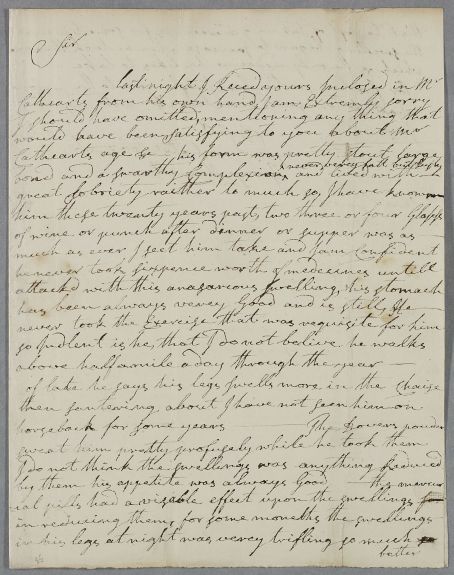 Sir
last night I Reced yours Inclosed in Mr
Cathcarts from his own hand, I am Extremly sorry
I should have omitted mentioning any thing that
would have been satisfying to you about Mr
Cathcarts age &c his form was pretty stout large
bond and a swarthy complexion never verey fatt but fleshy and lived with
great sobriety raither to much so, I have known
him these twenty years past, two three or four Glasses
of wine or punch after dinner or supper was as
much as ever I seet him take and I am Confident
he never took sixpence worth of medecines untill
attackd with this anasarcous swelling, his stomach
has been always verey Good and is still, He
never took the Exercise that was requisite for him
so Indlent is he, that I do not belive he walks
above half a mile a day through the year
of late he says his legs swells more in the Chaise
then santering about I have not seen him on
horseback for some years The Dovers pouder
sweat him pretty profusely while he took them
I do not think the swellings was anything Reduced
by them his appetite was always Good the mercur
ial pills had a visable effect upon the swellings
in reducing them, for some moneths the swellings
in his legs at night was verey trifling so much
better